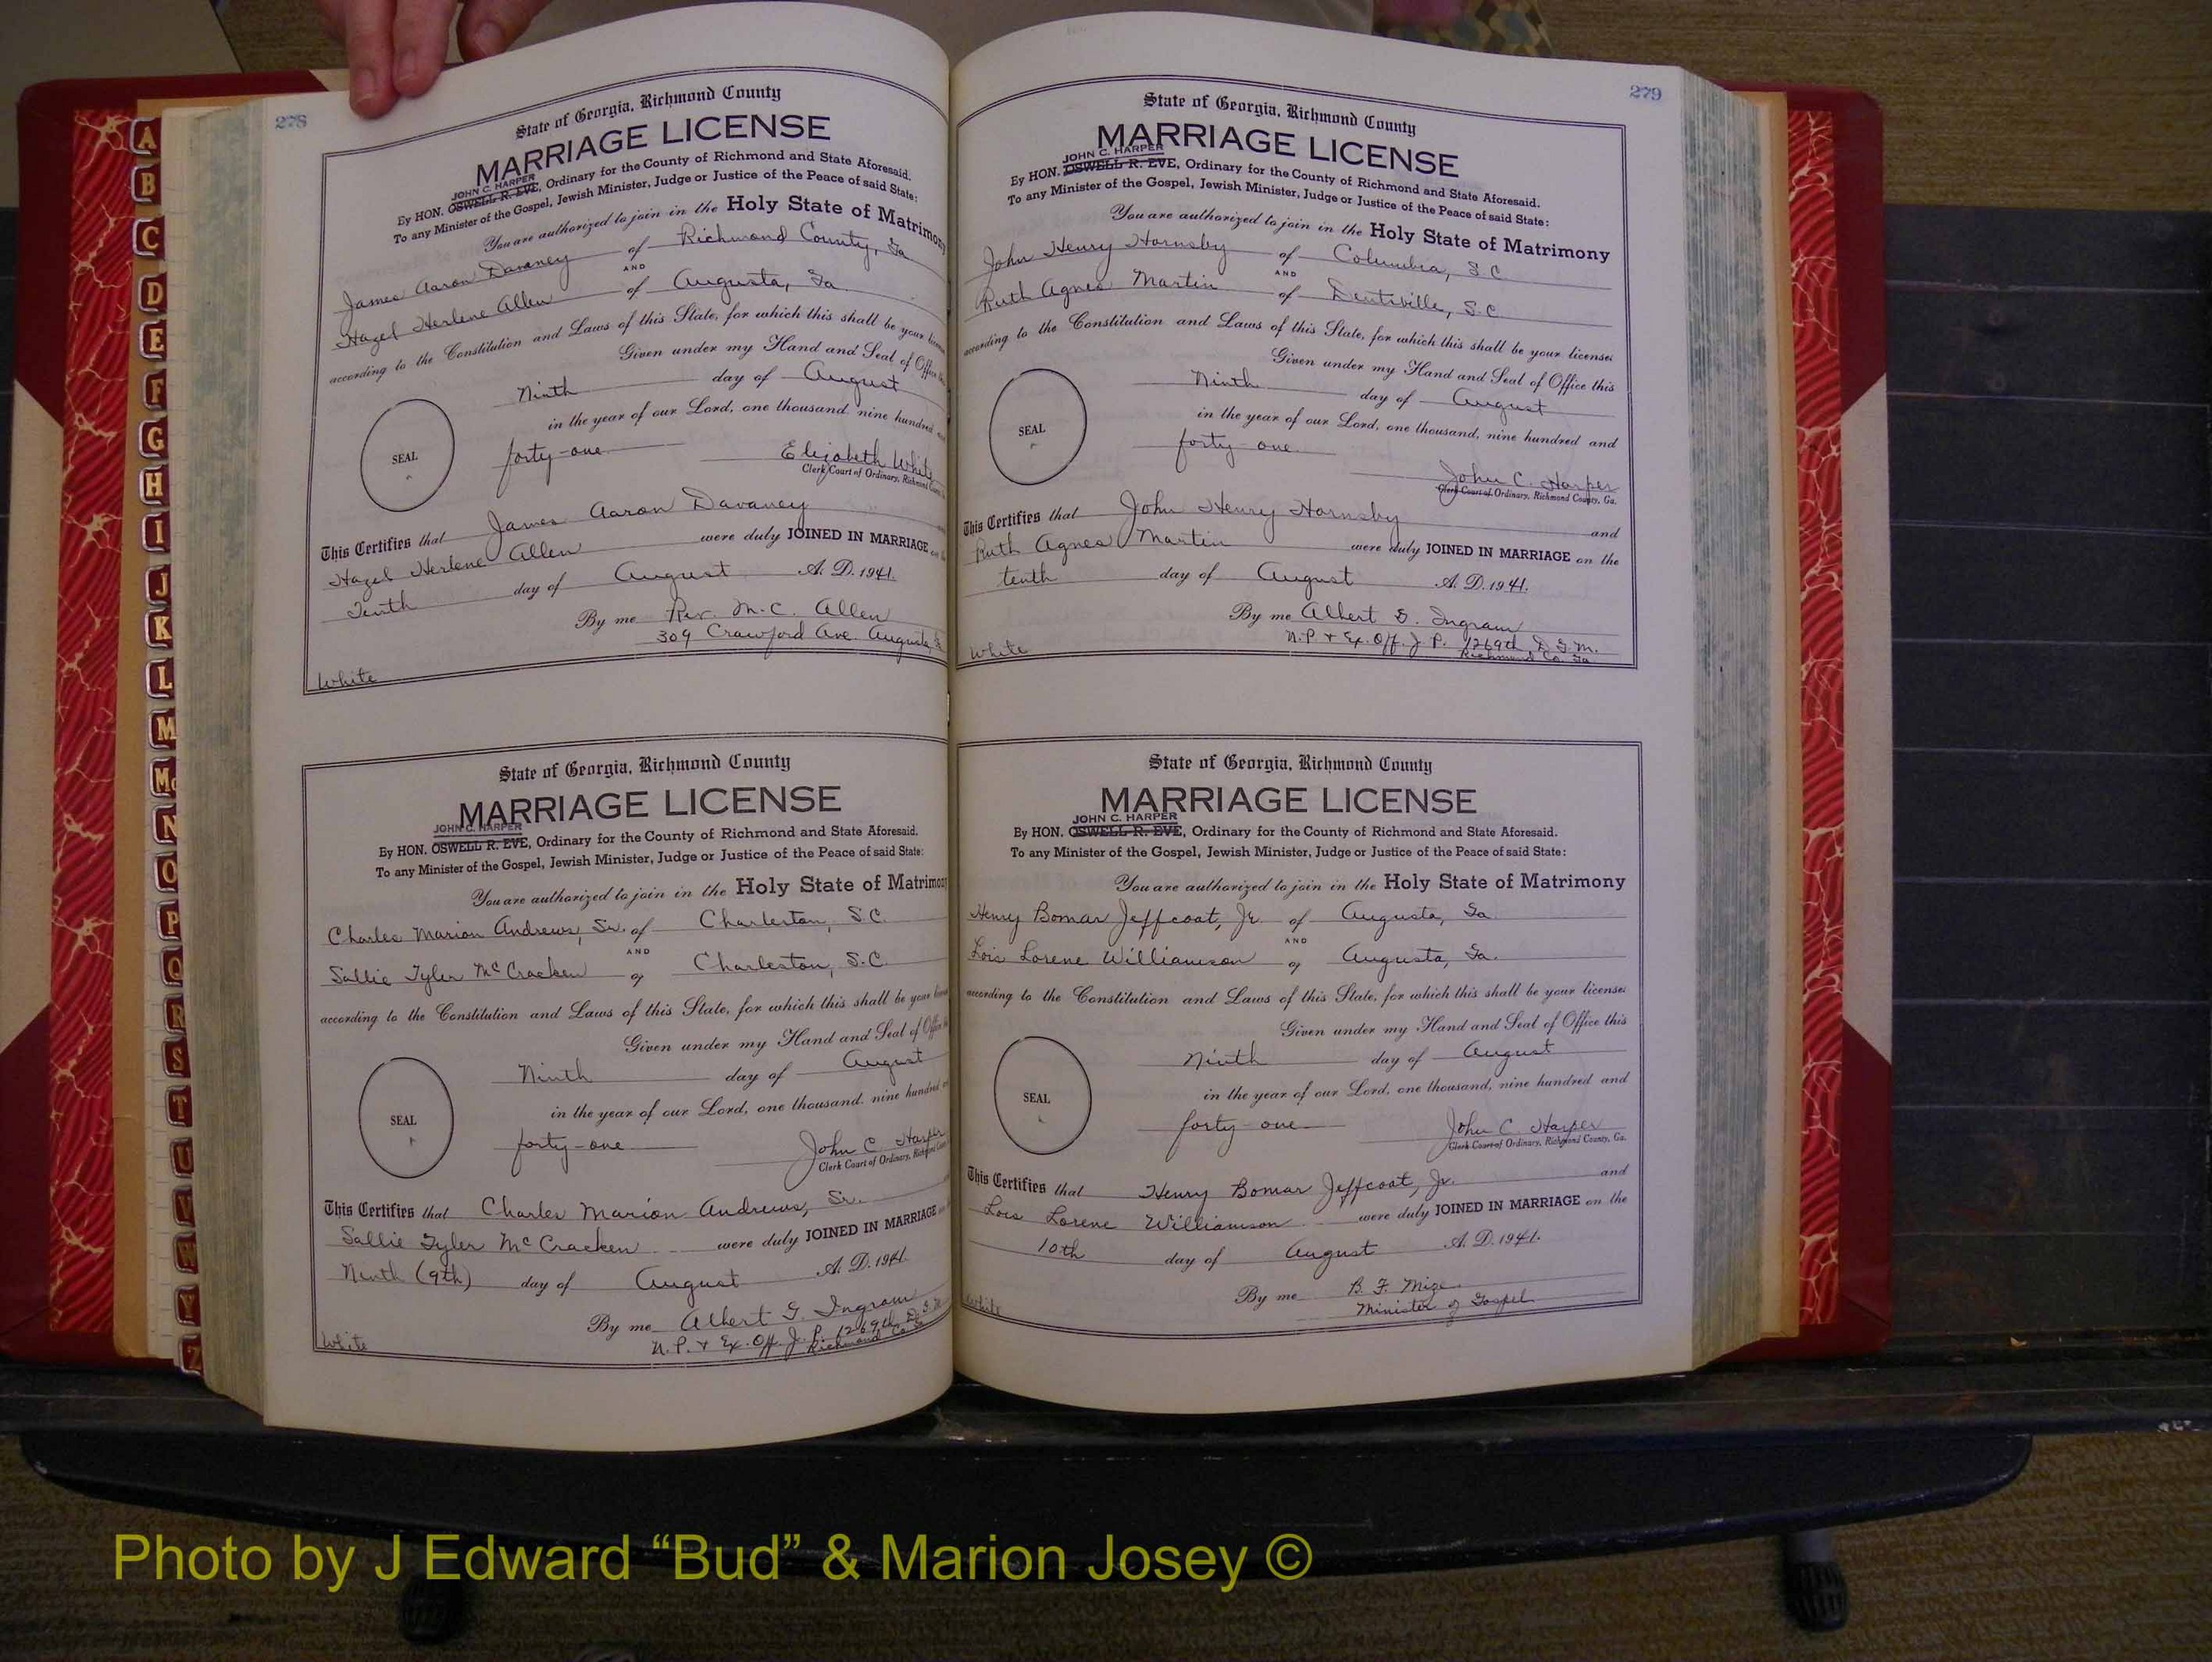 278
State of Georgia, Richmond County
MARRIAGE LICENSE
JOHN C. HARPER
By HON. OSWELL R. EVE, Ordinary for the County of Richmond and State Aforesaid.
To any Minister of the Gospel, Jewish Minister, Judge or Justice of the Peace of said State:
You are authorized to join in the Holy State of Matrimony
James Aaron Davaney of Richmond County, Ga
AND
Hazel Herlene Allen of Augusta, Ga.
according to the Constitution and Laws of this State, for which this shall be your license
Given under my Hand and Seal of Office
Ninth day of August
in the year of our Lord, one thousand, nine hundred
SEAL
forty-one
Elizabeth White
Clerk Court of Ordinary, Richmond
This Certifies that James Aaron Davaney
Hazel Herlene Allen were duly JOINED IN MARRIAGE
Tenth day of August A. D. 1941.
By me Rev. M. C. Allen
309 Crawford Ave. Augusta
White
State of Georgia, Richmond County
MARRIAGE LICENSE
JOHN C. HARPER
By HON. OSWELL R. EVE, Ordinary for the County of Richmond and State Aforesaid.
To any Minister of the Gospel, Jewish Minister, Judge or Justice of the Peace of said State:
You are authorized to join in the Holy State of Matrimony
Charles Marion Andrews, Sr. of Charleston, S.C.
AND
Sallie Tyler McCracken of Charleston, S.C.
according to the Constitution and Laws of this State, for which this shall be your
Given under my Hand and Seal of Office
Ninth day of August
in the year of our Lord, one thousand, nine hundred
SEAL
forty-one
John C Harper
Clerk Court of Ordinary, Richmond
This Certifies that Charles Marion Andrews, Sr.
Sallie Tyler McCracken were duly JOINED IN MARRIAGE
Ninth (9th) day of August A. D. 1941.
By me Albert G. Ingram
N. P. & Ex. Off. J. P. 1269th D. G. M.
Richmond Co. Ga
White
279
State of Georgia, Richmond County
MARRIAGE LICENSE
JOHN C. HARPER
By HON. OSWELL R. EVE, Ordinary for the County of Richmond and State Aforesaid.
To any Minister of the Gospel, Jewish Minister, Judge or Justice of the Peace of said State:
You are authorized to join in the Holy State of Matrimony
John Henry Hornsby of Columbia, S.C
AND
Ruth Agnes Martin of S.C
according to the Constitution and Laws of this State, for which this shall be your license
Given under my Hand and Seal of Office this
Ninth day of August
in the year of our Lord, one thousand, nine hundred and
SEAL
forty-one
John C. Harper
Clerk Court of Ordinary, Richmond County, Ga.
This Certifies that John Henry Hornsby and
Ruth Agnes Martin were duly JOINED IN MARRIAGE on the
tenth day of August A. D. 1941.
By me Albert G. Ingram
N. P. & Ex. Off. J. P. 1269th D. G. M.
Richmond Co. Ga
White
State of Georgia, Richmond County
MARRIAGE LICENSE
JOHN C. HARPER
By HON. OSWELL R. EVE, Ordinary for the County of Richmond and State Aforesaid.
To any Minister of the Gospel, Jewish Minister, Judge or Justice of the Peace of said State:
You are authorized to join in the Holy State of Matrimony
Henry Bomar Jeffcoat, Jr. of Augusta, Ga
AND
Lois Lorene Williamson of Augusta, Ga.
according to the Constitution and Laws of this State, for which this shall be your license
Given under my Hand and Seal of Office this
Ninth day of August
in the year of our Lord, one thousand, nine hundred and
SEAL
forty-one
John C. Harper
Clerk Court of Ordinary, Richmond County, Ga.
This Certifies that Henry Bomar Jeffcoat, Jr. and
Lois Lorene Williamson were duly JOINED IN MARRIAGE on the
10th day of August A. D. 1941.
By me B. F. Mize
Minister of Gospel
White
A
B
C
D
E
F
G
H
I
J
K
L
M
Mc
N
O
P
Q
R
S
T
U
V
W
Y
Z
Photo by J Edward “Bud” & Marion Josey ©